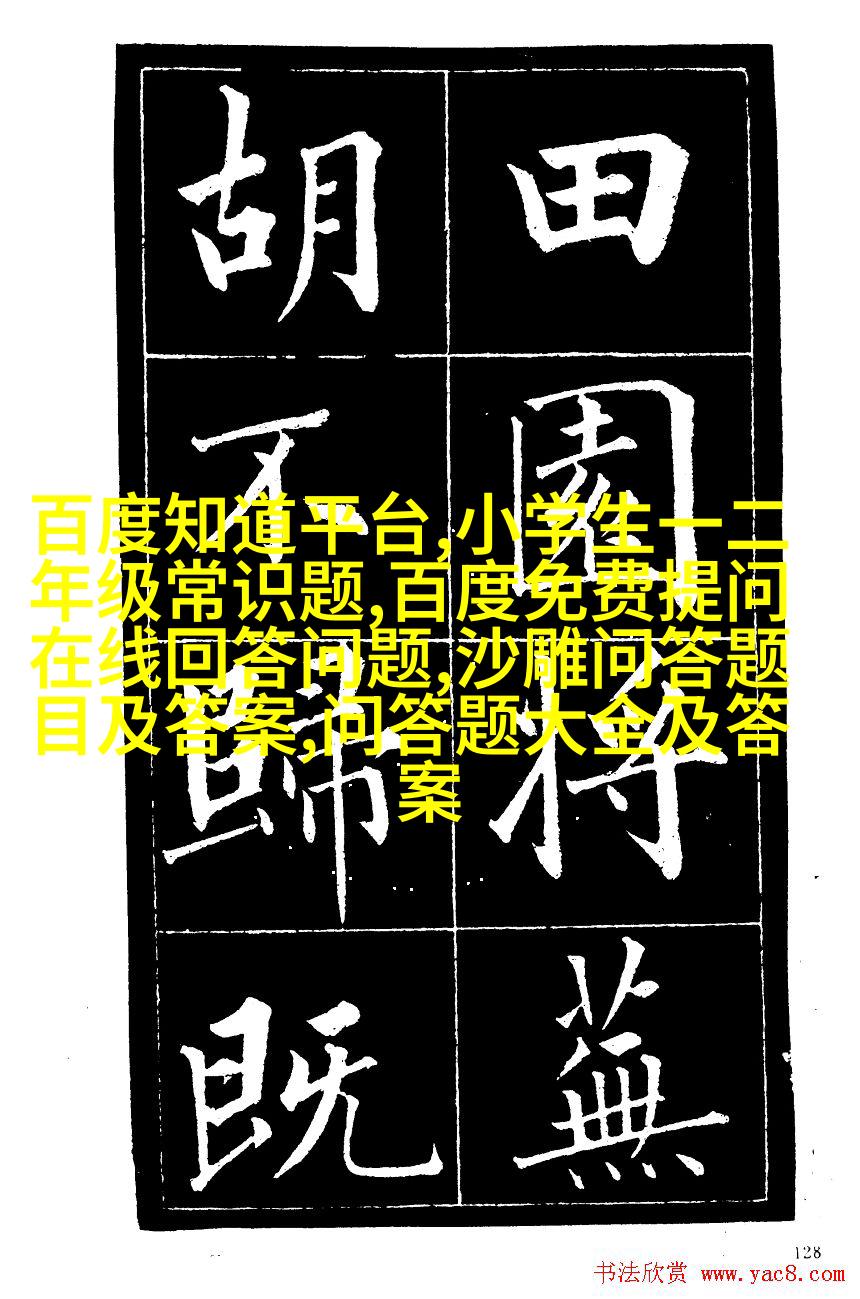 田園将蕪
胡不歸既
百度知道平台,小学生一二
年级常识题,百度免费提问
在线回答问题,沙雕问答题
目及答案,问答题大全及答
案
128
书法欣赏 www.yac8.com